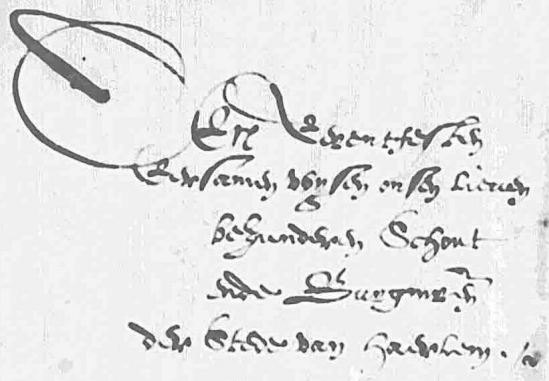 Den Eerentfesten
Eersamen wysen onsen lieuen
besunderen Schout
ende Burgmrn
der Stede van Haerlem